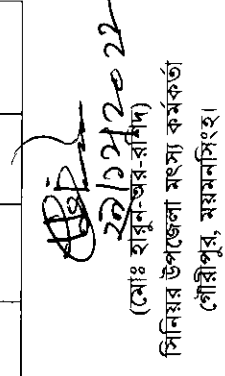 (মোঃ হারুন-অর-রশিদ)
সিনিয়র উপজেলা মৎস্য কর্মকর্তা
গৌরীপুর, ময়মনসিংহ।